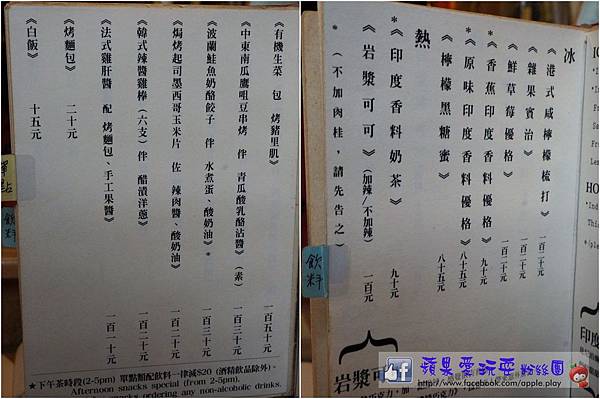 《有機生菜 包 烤豬里肌》 一百五十元
《中東南瓜鷹咀豆串烤 伴 青瓜酸乳酪沾醬》(素) 一百三十元
《波蘭鮭魚奶酪餃子 伴 水煮蛋、酸奶油》* 一百三十元
《焗烤起司墨西哥玉米片 佐 辣肉醬 酸奶油》 一百二十元
《韓式辣醬雞棒(六支) 伴 醋漬洋蔥》 一百二十元
《法式雞肝醬 配 烤麵包、手工果醬》 一百一十元
《烤麵包》 二十元
《白飯》 十五元
★下午茶時段(2-5pm) 單點類配飲料一律減$20 (酒精飲品除外)。
Afternoon snacks special (from 2-5pm).
snacks ordering any non-alcoholic drinks.
單點
飲料
冰
《港式咸檸檬梳打》 一百二十元
《雜果賓治》 一百二十元
《鮮草莓優格》 一百二十元
*《香蕉印度香料優格》 九十元
*《原味印度香料優格》 八十五元
《檸檬黑糖蜜》 八十五元
熱
*《印度香料奶茶》 九十元
《岩漿可可》(加辣/不加辣) 一百元
*(不加肉桂,請先告之)
飲料
岩漿可
印度
HO
蘋果愛玩耍 粉絲團
http://www.facebook.com/apple.play